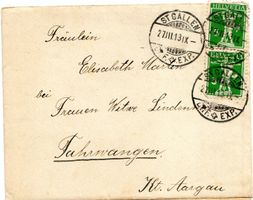 HELVETIA
ST. GALLEN
27.III.13.IX–
BRF. EXP.
Fräulein
Elisabeth
bei
Frauen Witwe Lindenm
Fahrwangen.
Kt. Aargau